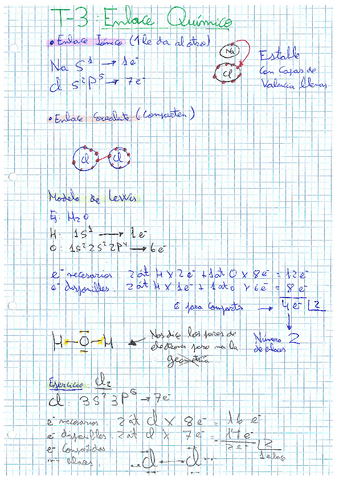 T-3: Enlace Químico
• Enlace Iónico (1 le da al otro)
Na S¹ → 1e⁻
Cl S² P⁵ → 7e⁻
Na
Cl
Estable
Con Capas de
Valencia llenas
• Enlace Covalente (Comparten)
Cl Cl
Modelo de Lewis
Ej: H₂O
H: 1S¹ → 1e⁻
O: 1S² 2S² 2P⁴ → 6e⁻
e⁻ necesarios 2 at H x 2e⁻ + 1 at O x 8e⁻ = 12e⁻
e⁻ disponibles 2 at H x 1e⁻ + 1 at O x 6e⁻ = 8e⁻
e⁻ para compartir → 4e⁻ 2
2
Número
de enlaces
H-O-H
Nos dice los pares de
electrones pero no la
geometría
Ejercicio Cl₂
Cl 3S² 3P⁵ → 7e⁻
e⁻ necesarios 2 at Cl x 8e⁻ = 16e⁻
e⁻ disponibles 2 at Cl x 7e⁻ = 14e⁻
e⁻ Compartidos 2e⁻ 2
enlaces Cl Cl